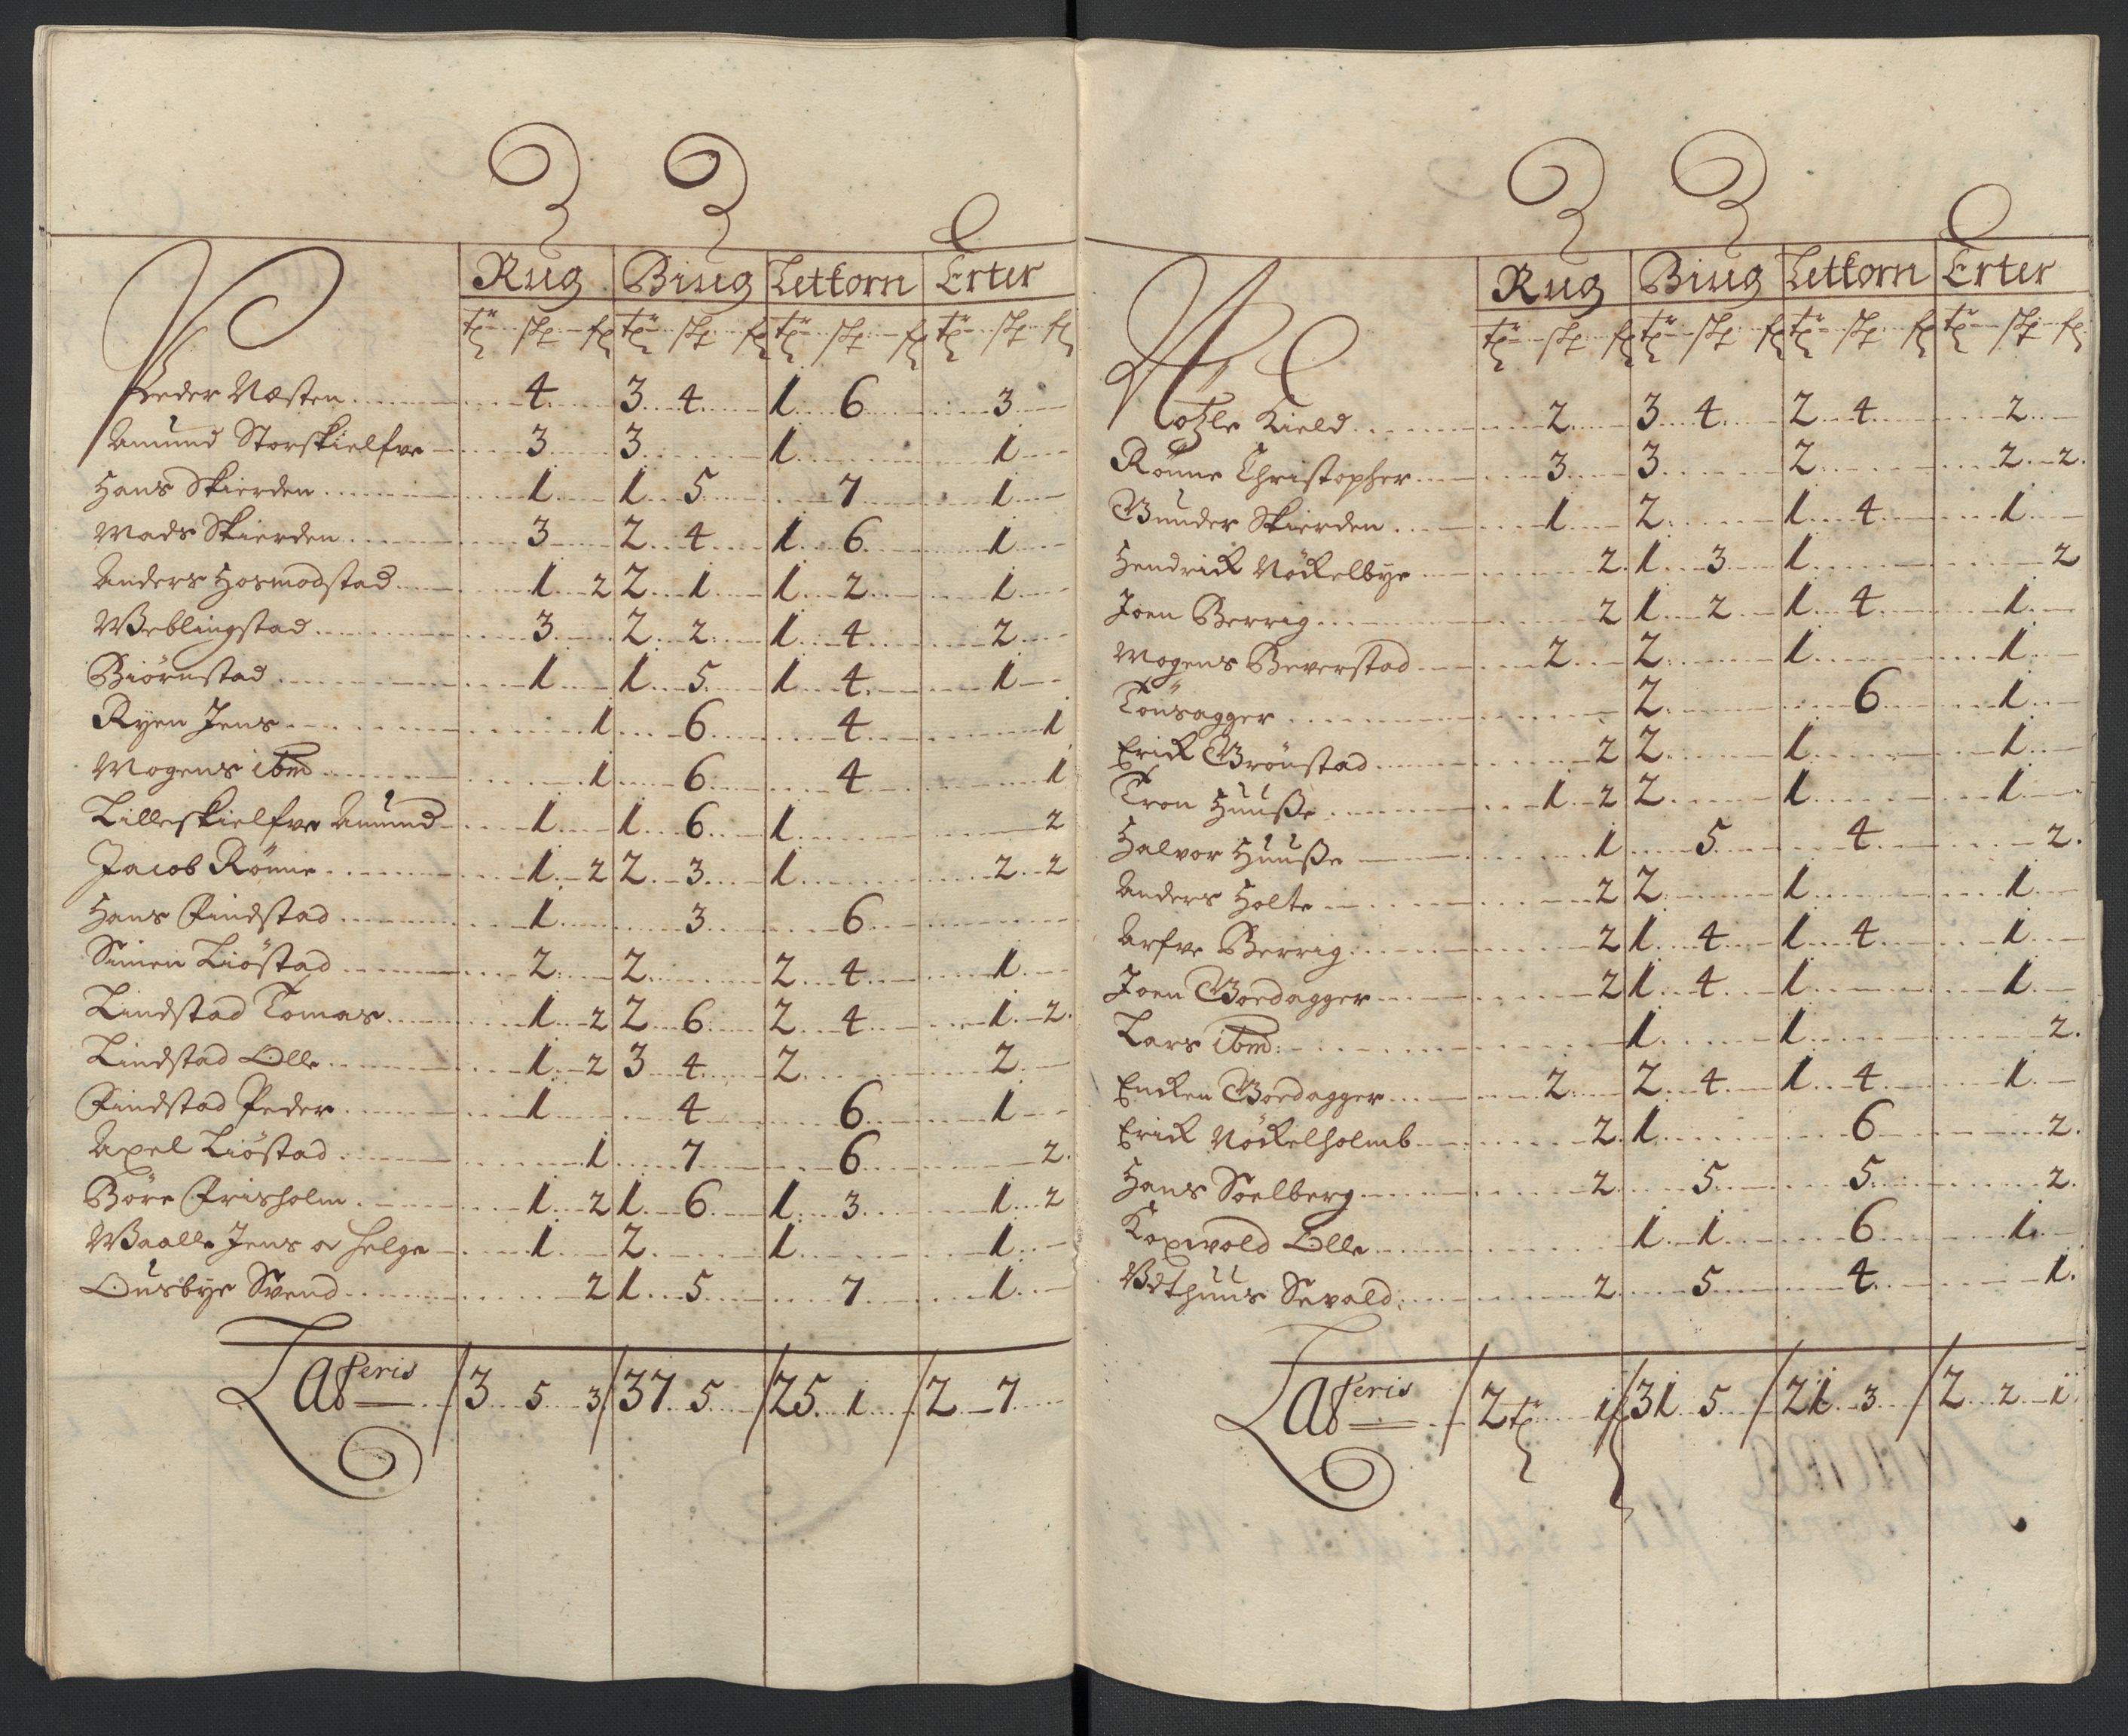 Rug Biug Lettorn Erter
tr skp fr tr skp fr tr skp fr tr skp fr
Peder Næsten 4 3 4 1 6 3
Amund Storskielfve 3 3 1 1
Hans Skierden 1 1 5 7 1
Mads Skierden 3 2 4 1 6 1
Anders Hosmodstad 1 2 2 1 1 2 1
Weblingstad 3 2 2 1 4 2
Biörnstad 1 1 5 1 4 1
Ryen Jens 1 6 4 1
Mogens ibm 1 6 4 1
Lilleskielfve Amund 1 1 6 1 2
Jacob Rönne 1 2 2 3 1 2 2
Hans Findstad 1 3 6
Simen Liöstad 2 2 2 4 1
Lindstad Tomas 1 2 2 6 2 4 1 2
Lindstad Olle 1 2 3 4 2 2
Findstad Peder 1 4 6 1
Axel Liöstad 1 7 6 2
Börre Frisholm 1 2 1 6 1 3 1 2
Waalle Jens o Helge 1 2 1 1
Ousbye Svend 2 1 5 7 1
Lateris /3 5 3/37 5 /25 1 /2 7
Rug Biug Lettorn Erter
tr skp fr tr skp fr tr skp fr tr skp fr
Kield 2 3 4 2 4 2
Rönne Christopher 3 3 2 2 2
Gunder Skierden 1 2 1 4 1
Hendrick Nöckelbye 2 1 3 1 2
Joen Berrig 2 1 2 1 4 1
Mogens Beverstad 2 2 1 1
Tönsagger 2 6 1
Erick Grönstad 2 2 1 1
Tron Huuße 1 2 2 1 1
Halvor Huuße 1 5 4 2
Anders Holte 2 2 1 1
Arfve Berrig 2 1 4 1 4 1
Joen Goedagger 2 1 4 1 1
Lars ibm 1 1 2
Encken Goedagger 2 2 4 1 4 1
Erick Nöckelholmb 2 1 6 2
Hans Soelberg 2 5 5 2
Koxvold Olle 1 1 6 1
Vdthuus Sevald 2 5 4 1
Lateris /2 tr 1 /31 5 /21 3 /2 2 1